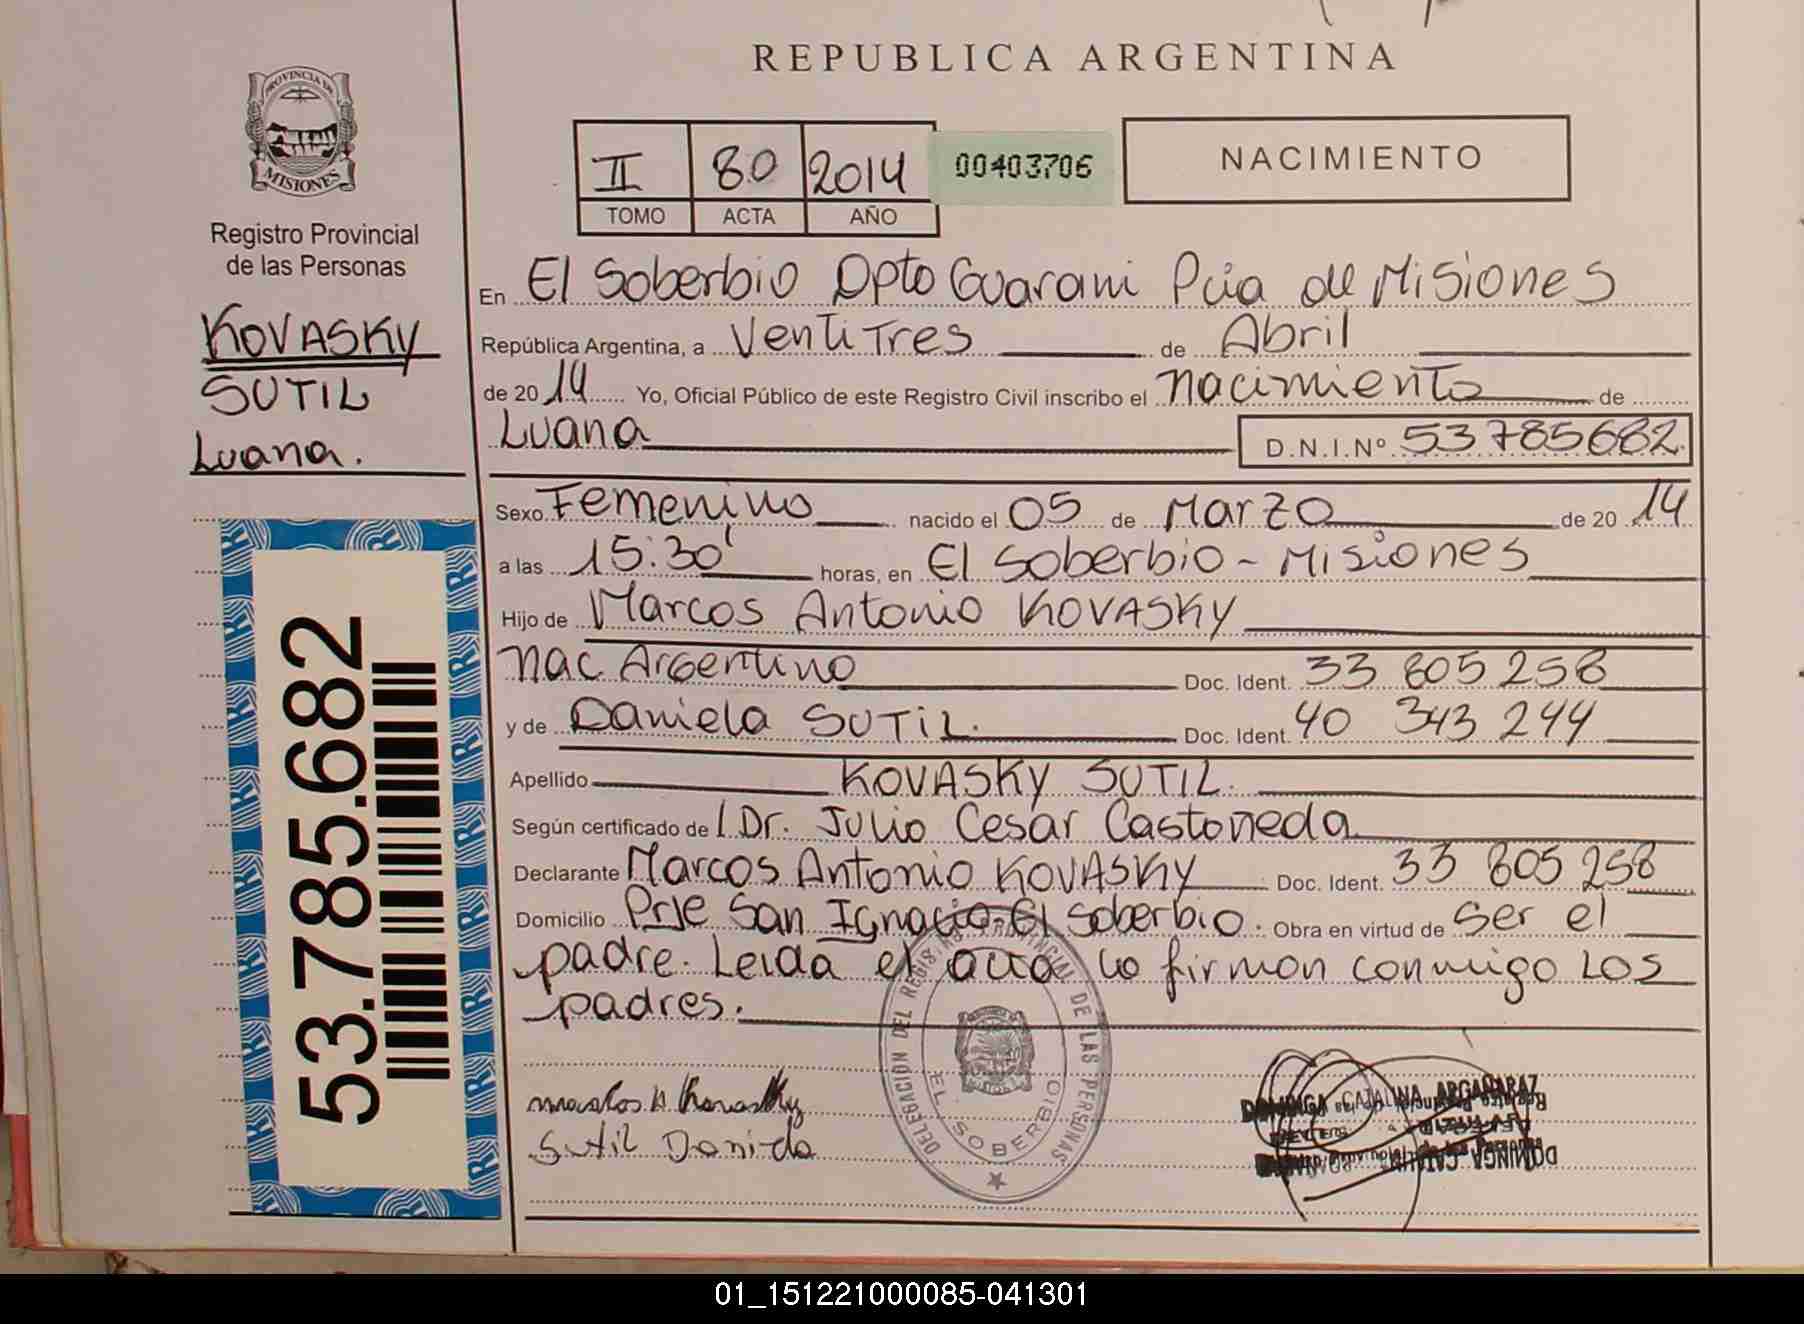 REPUBLICA ARGENTINA
PROVINCIA DE
MISIONES
Registro Provincial
de las Personas
KOVASKY
SUTIL
Luana.
II 80 2014
TOMO ACTA AÑO
00403706
NACIMIENTO
En El Soberbio Dpto Guarani Pcia de Misiones
República Argentina, a Ventitres de Abril
de 2014 Yo, Oficial Público de este Registro Civil inscribo el nacimiento de
Luana D.N.I.Nº 53785682
Sexo Femenino nacido el 05 de Marzo de 2014
a las 15:30' horas, en El Soberbio - Misiones
Hijo de Marcos Antonio KOVASKY
nac Argentino Doc. Ident. 33 805 258
y de Daniela SUTIL. Doc. Ident. 40 343 244
Apellido KOVASKY SUTIL.
Según certificado de Dr. Julio Cesar Castoneda.
Declarante Marcos Antonio KOVASKY Doc. Ident. 33 805 258
Domicilio Prje San Ignacio-El Soberbio. Obra en virtud de Ser el
padre. Leida el acta lo firman conmigo los
padres.
53.785.682
DELEGACION DEL REGISTRO PROVINCIAL DE LAS PERSONAS
EL SOBERBIO
Marcos A Kovasky
Sutil Daniela
DOMINGA CATALINA ARGAÑARAZ
01_151221000085-041301